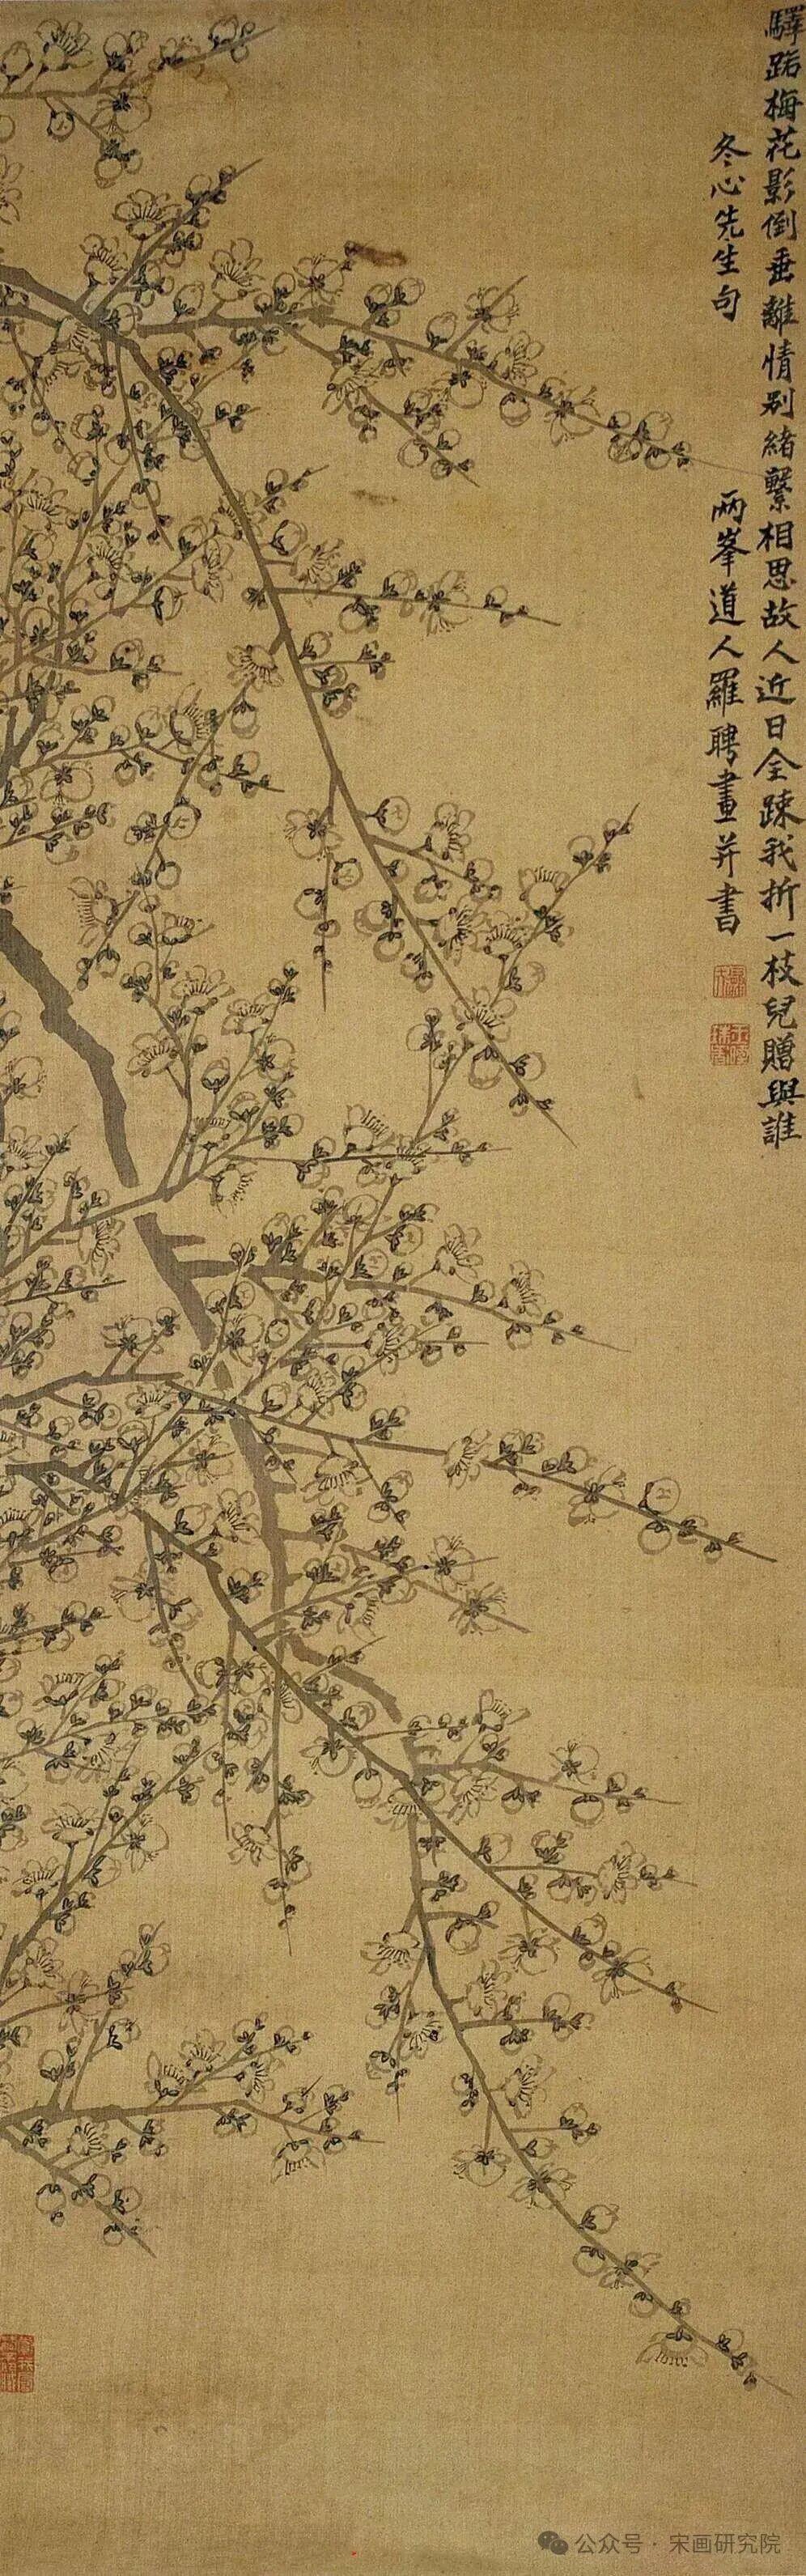 驛路梅花影倒垂離情別緒繫相思故人近日全踈我折一枝兒贈與誰
冬心先生句
兩峯道人羅聘畫并書
公众号 · 宋画研究院